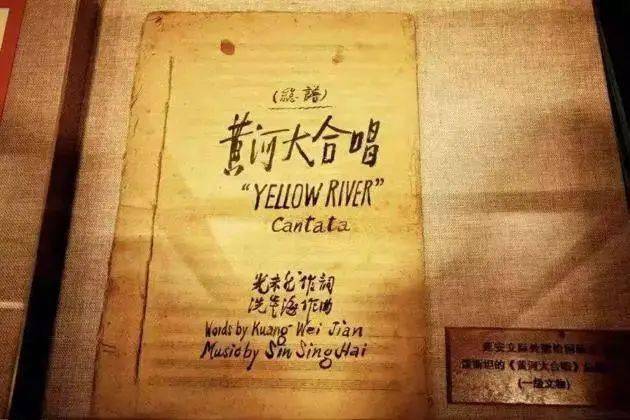 (總譜)
黄河大合唱
"YELLOW RIVER"
Cantata
光未然作詞
冼星海作曲
Words by Kuang Wei Jian
Music by Sin Sing Hai
斯坦的《黄河大合唱》
(一级文物)